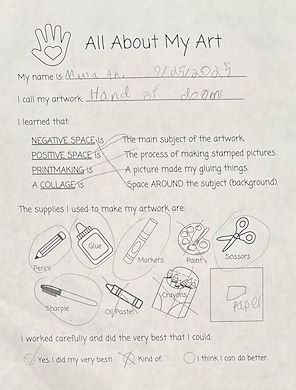 All About My Art
My name is: 9/25/2025
I call my artwork: Hand of doom
I learned that:
NEGATIVE SPACE is The main subject of the artwork.
POSITIVE SPACE is The process of making stamped pictures.
PRINTMAKING is A picture made my gluing things.
A COLLAGE is Space AROUND the subject (background).
The supplies I used to make my artwork are:
Glue
Pencil Markers Paint Scissors
Sharpie Oil Pastel Crayons paper
I worked carefully and did the very best that I could:
Yes, I did my very best! Kind of. I think I can do better.